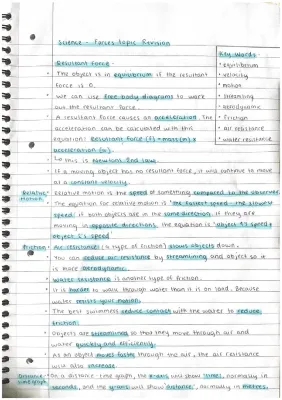 Science - Forces Topic Revision
Key Words -
• equilibrium
• velocity
• motion
• streamling
• aerodynamic
• friction
• air resistance
• water resistance
Resultant Force -
• The object is in equilibrium if the resultant
force is 0.
• We can use free body diagrams to work
out the resultant force.
• A resultant force causes an acceleration. The
acceleration can be calculated with this
equation: Resultant force (F) = mass (m) x
acceleration (a).
↳ this is Newtons 2nd law.
• If a moving object has no resultant force, it will continue to move
at a constant velocity.
Relative Motion
• Relative motion is the speed of something compared to the observer.
• The equation for relative motion is 'the fastest speed - the slower
speed' if both objects are in the same direction. If they are
moving in opposite directions, the equation is 'object 1's speed +
object 2's speed'
Friction
• Air resistance (a type of friction) slows objects down.
• You can reduce air resistance by streamlining and object so it
is more aerodynamic.
• Water resistance is another type of friction.
• It is harder to walk through water than it is on land, because
water resists your motion.
• The best swimmers reduce contact with the water to reduce
friction.
• Objects are streamlined so that they move through air and
water quickly and efficiently.
• As an object moves faster through the air, the air resistance
will also increase.
Distance-time graph
• On a distance-time graph, the x-axis will show 'time', normally in
seconds, and the y-axis will show 'distance', normally in metres.